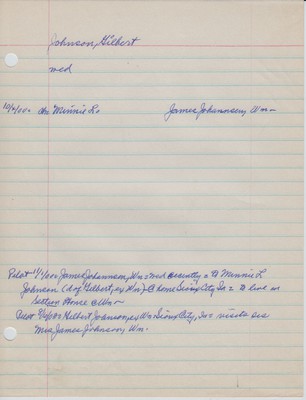 Johnson, Gilbert
med
10/2/00 Minnie L. James Johannsen, Wm-
Pilot 11/1/00 James Johannsen, Wm = med recently = to Minnie L
Johnson (dau Gilbert, ex Wm) @ home Sioux City Ia = to live in
Home @ Wm ~
Pilot Gilbert Johnson, ex Wm Sioux City, Ia = visits sis
Mrs James Johnson, Wm.